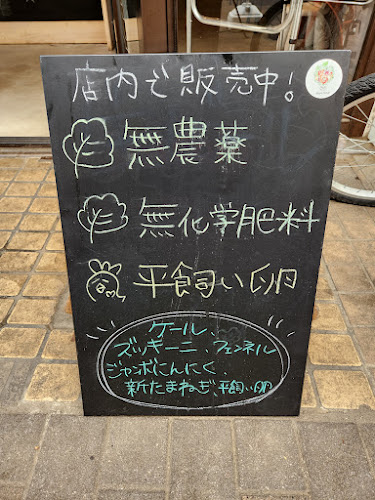 店内で販売中!
無農薬
無化学肥料
平飼い卵
ケール、
ズッキーニ、フェンネル
ジャンボにんにく、
新たまねぎ、平飼い卵